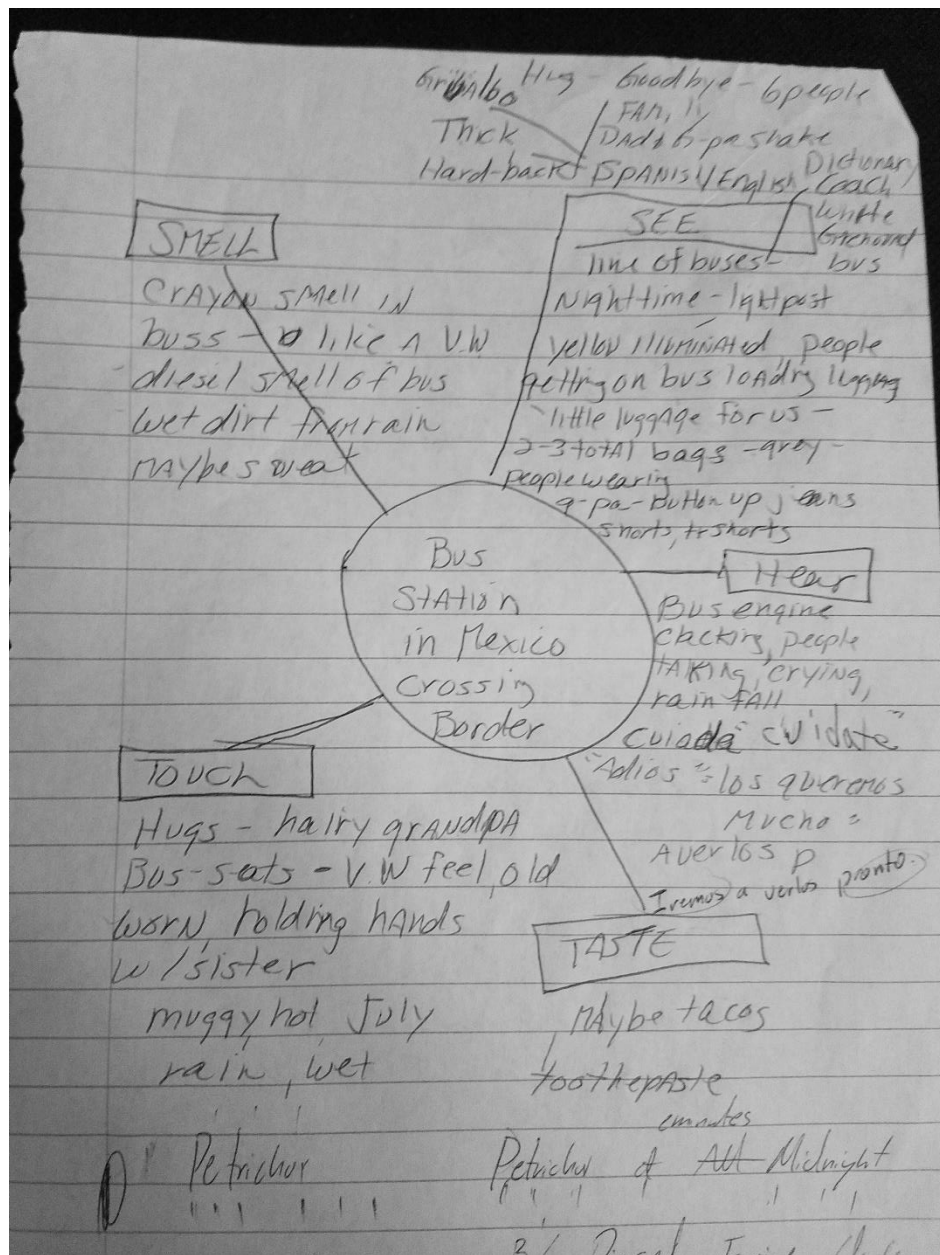 Hug - Goodbye - 6 people
Thick
Hard-back SPANISH/English Dictionary
Coach
White
bus
SMELL
Crayon smell in
buss - like A V.W
diesel smell of bus
wet dirt from rain
MAybe sweat
SEE
line of buses -
Nighttime - lghtpost
yellow illuminated, people
getting on bus loading
little luggage for us -
2-3 total bags - grey -
people wearing
g-pa - button up jeans
shorts,
Bus
Station
in Mexico
Crossing
Border
Hear
Bus engine
clacking, people
talking, crying,
rain fall
"cuidate"
"Adios" "los queremos
Mucho"
A verlos p
Iremos a verlos pronto.
TOUCH
Hugs - hairy grandpa
Bus-seats - V.W feel, old
worn, holding hands
w/sister
muggy, hot, July
rain, wet
TASTE
MAybe tacos
toothepaste
Petrichor
Petrichor Midnight